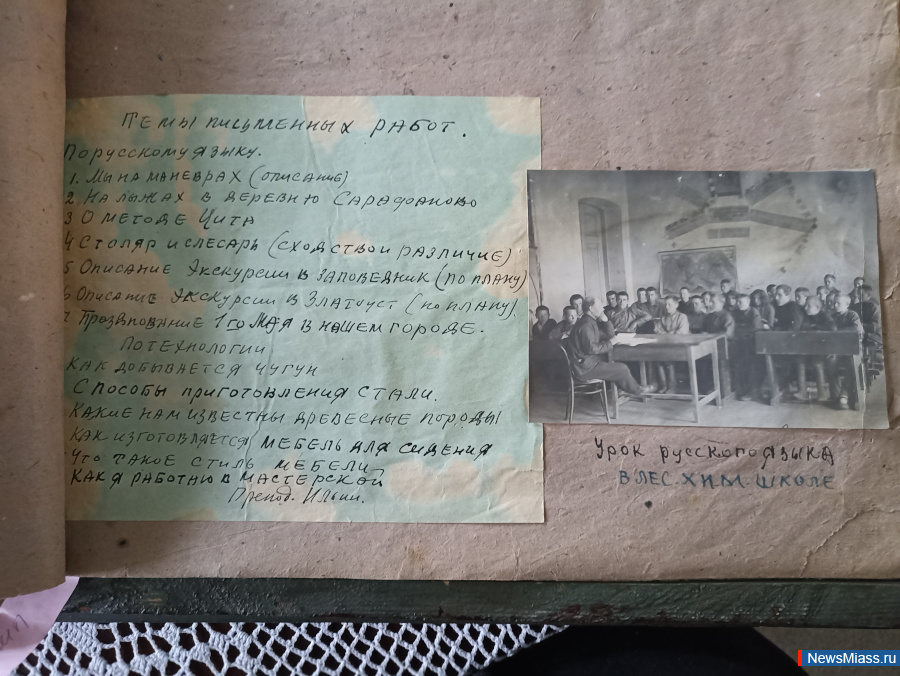 Темы письменных работ.
По русскому языку.
1. Мы на маневрах (описание)
2. На лыжах в деревню Сарафаново
3 О методе Цита
4 Столяр и слесарь (сходство и различие)
5 Описание экскурсии в заповедник (по плану)
6 Описание экскурсии в Златоуст (по плану)
7 Празднование 1го Мая в нашем городе.
По технологии
Как добывается чугун
Способы приготовления стали.
Какие нам известны древесные породы
Как изготовляется мебель для сидения
Что такое стиль мебели
Как я работаю в мастерской
Препод. Ильин.
Урок русского языка
в лес. хим. школе
NewsMiass.ru